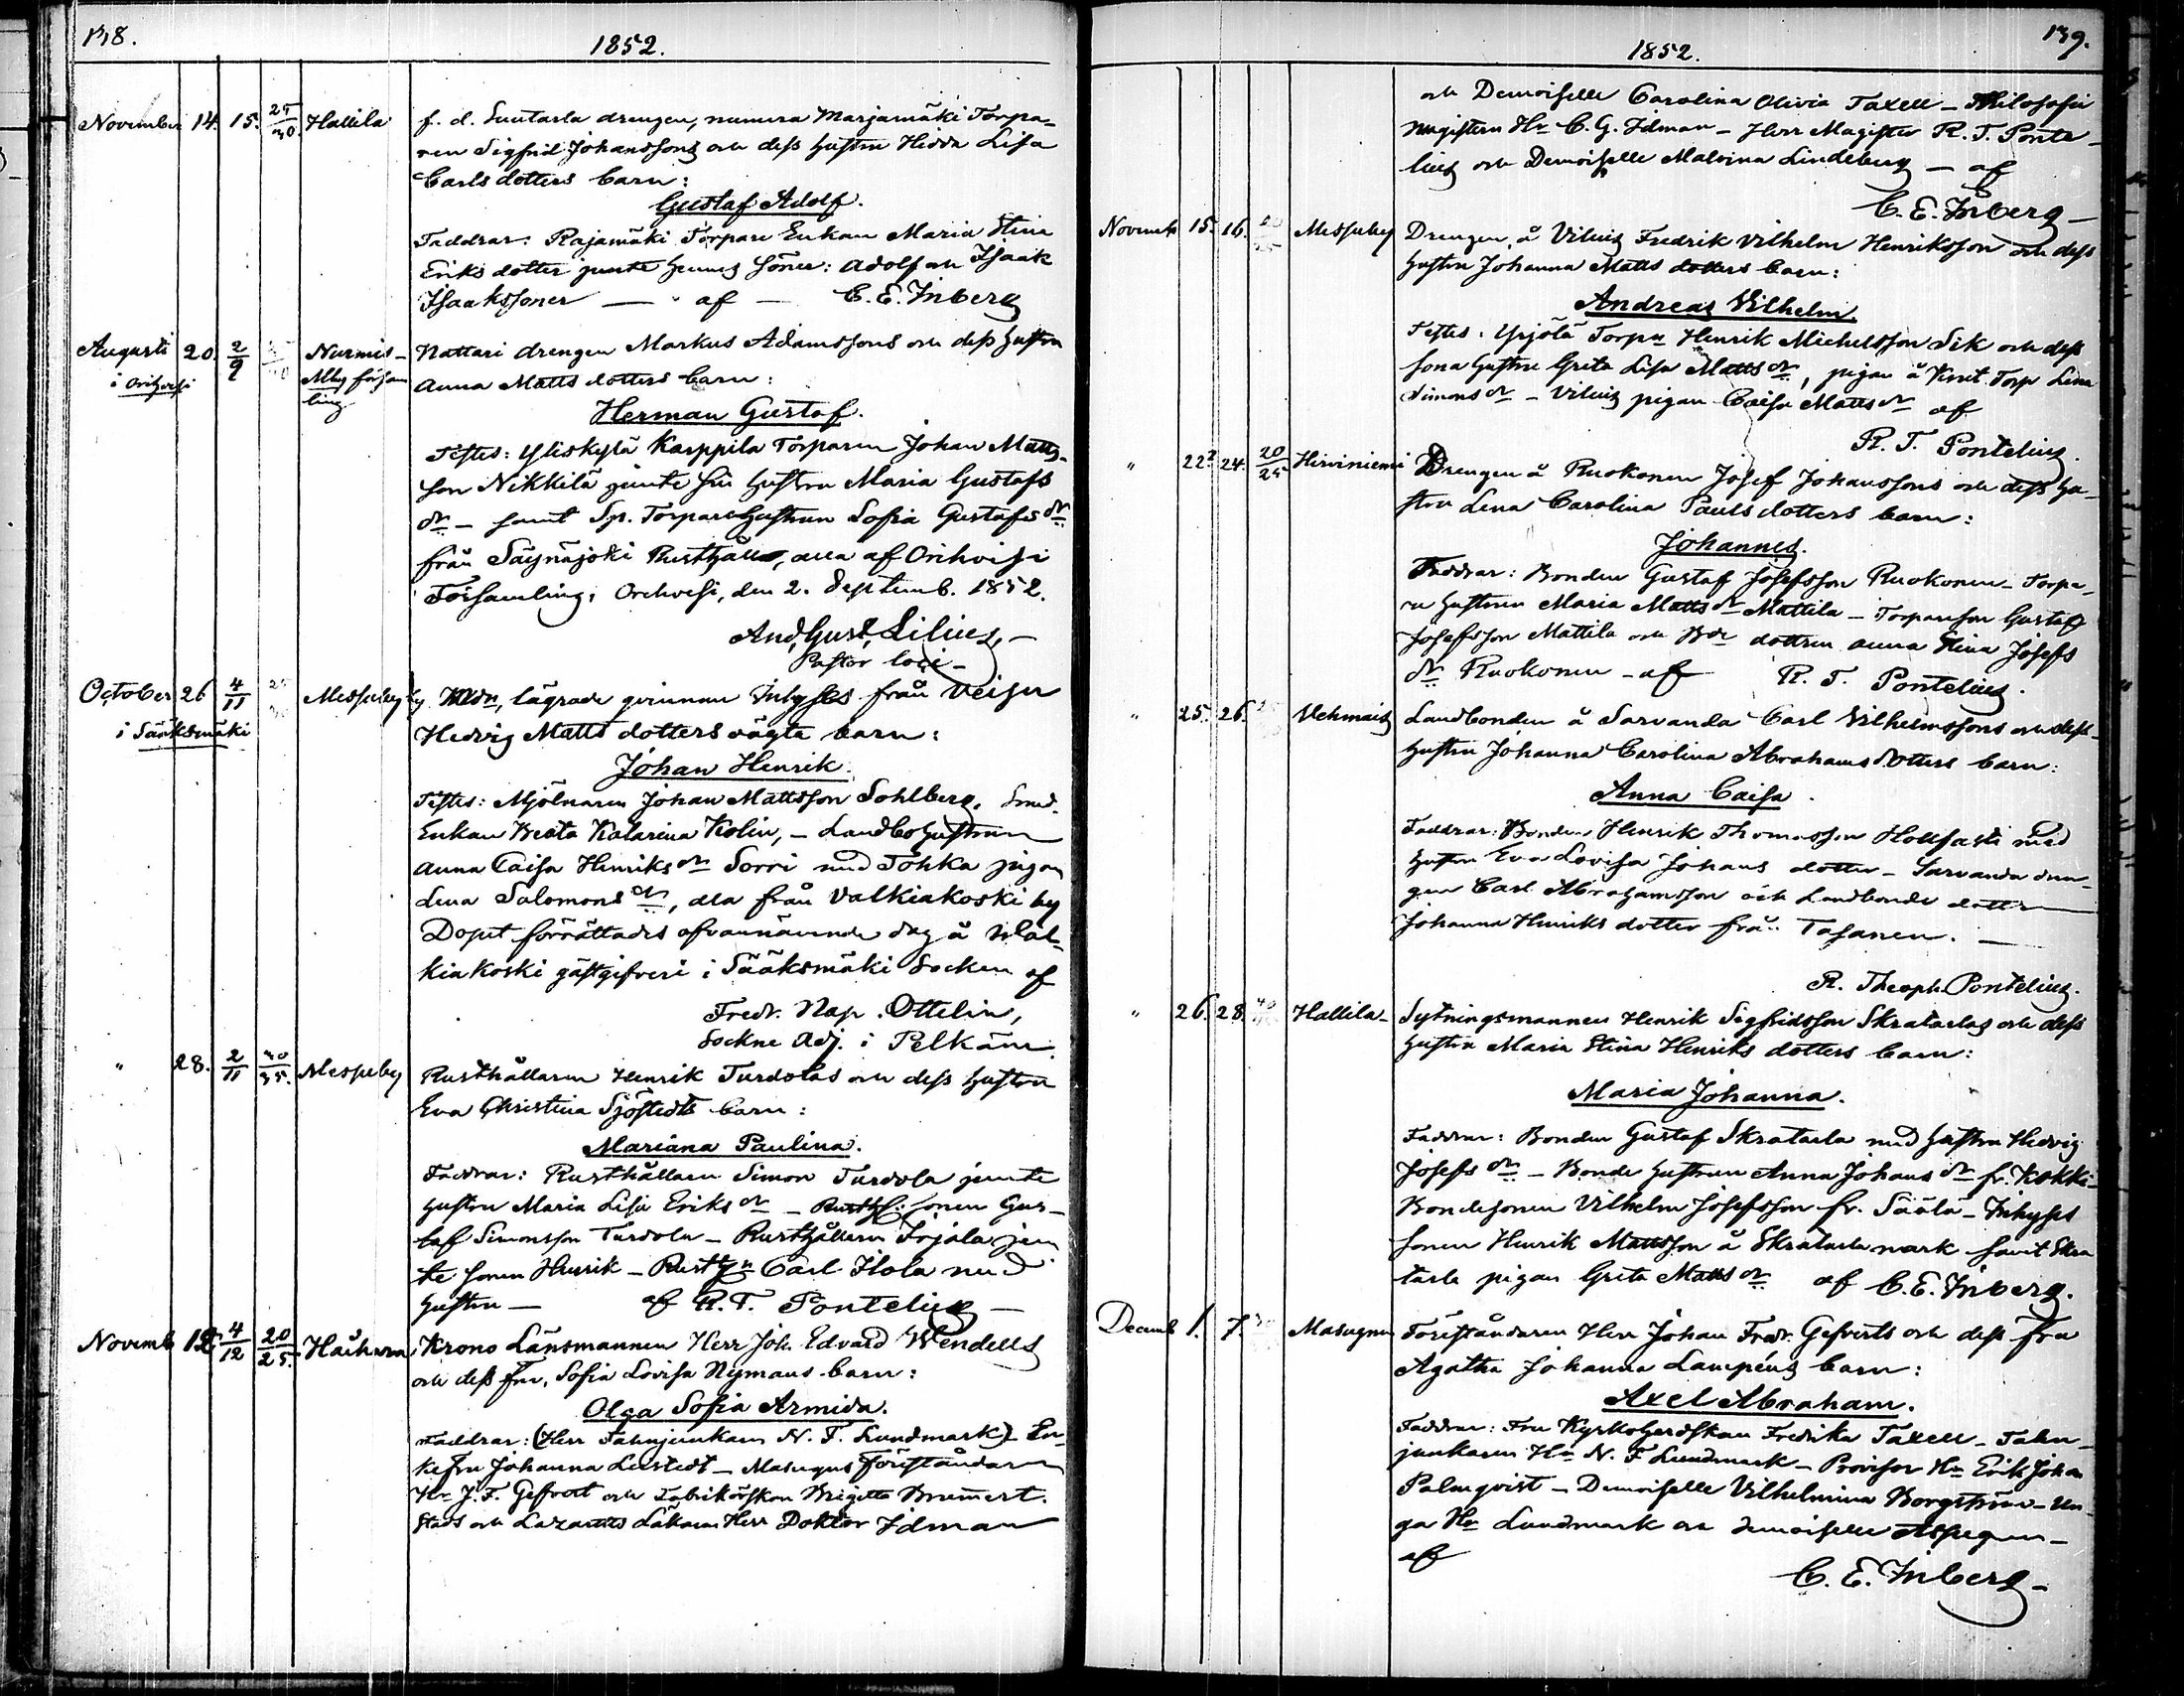 138.
1852.
November 14. 15. 25/30. Hallila f. d. Suutarla drengen, numera Marjamäki Torpa-
ren Sigfrid Johanssons och dess hustru Hedda Lisa
Carls dotters barn:
Gustaf Adolf.
Faddrar: Rajamäki Torpare Enkan Maria Stina
Eriks dotter jemte hennes söner: Adolf och Isaak
Isaakssöner — af — C. E. Inberg
Augusti 20. 2/9 Nurmis- Nattari drengen Markus Adamssons och dess hustru
i Orihvesi Mby försam Anna Matts dotters barn:
ling
Herman Gustaf.
Testes: Yliskylä Karppila Torparen Johan Matts-
son Nikkilä jemte sin hustru Maria Gustafs
dr — samt Sp. Torpare hustrun Sofia Gustafs dr
från Säynäjoki Rusthåll, alla af Orihvesi
Församling; Orehvesi, den 2. Septemb. 1852.
And. Gust. Lilius, —
Pastor loci —
October 26 4/11 25/30 Messuby qvinnan Inhyses från Veisu
i Sääksmäki Hedvig Matts dotters oägta barn:
Johan Henrik.
Testes: Mjölnaren Johan Mattsson Sohlberg, Smed.
Enkan Beata Katarina Kolin, — Landbohustrun
Anna Caisa Henriks dr Sorri med Tohka pigan
Lena Salomons dr, alla från Valkiakoski by
Dopet förrättades ofvannämnde dag å Wal-
kiakoski gästgifveri i Sääksmäki Socken af
Fredr. Nap. Ottelin,
Sockne Adj. i Pelkäne.
" 28. 2/11 30/35. Messuby Rusthållaren Henrik Turdolas och dess hustru
Eva Christina Sjöstedts barn:
Mariana Paulina.
Faddrar: Rusthållaren Simon Turdola jemte
hustru Maria Lisa Eriks dr — Rusth: sonen Gus-
taf Simonsson Turdola — Rusthållaren Irjala jem
te sonen Henrik — Rusth:n Carl Ilola med
hustru — af R. T. Pontelius —
Novemb 12. 4/12 20/25. Haihara Krono Länsmannen Herr Joh. Edvard Wendells
och dess fru, Sofia Lovisa Nymans barn:
Olga Sofia Armida.
Faddrar: (Herr Fahnjunkaren N. F. Lundmark) — En-
kefru Johanna Lilstedt — Masugns Föreståndaren
Hr J. F. Gefvert och Fabrikörskan Brigitta Bremert.
Stads och Lazaretts Läkaren Herr Doktor Idman
139.
1852.
och Demoiselle Carolina Olivia Taxell — Philosofie
Magistern Hr C. G. Idman — Herr Magister R. T. Ponte-
lius och Demoiselle Malvina Lindeberg — af
C. E. Inberg —
Novemb 15. 16. Messuby Drengen å Vilius Fredrik Vilhelm Henriksson och dess
hustru Johanna Matts dotters barn:
Andreas Vilhelm.
Testes: Yrjölä Torpn Henrik Michelsson Sik och dess
sona hustru Greta Lisa Matts dr, pigan å Torp Lena
Simons dr — Vilius pigan Caisa Matts dr af
R. T. Pontelius.
" 22. 24. 20/25 Hirviniemi Drengen å Ruokonen Josef Johanssons och dess hu-
stru Lena Carolina Pauls dotters barn:
Johannes.
Faddrar: Bonden Gustaf Josefsson Ruokonen — Torpa-
re hustrun Maria Matts dr Mattila — Torpareson Gustaf
Josefsson Mattila och Bde dottren Anna Stina Josefs
dr Ruokonen — af R. T. Pontelius.
" 25. 26. Vehmais Landbonden å Sarvanda Carl Vilhelmssons och dess
hustru Johanna Carolina Abrahams dotters barn:
Anna Caisa.
Faddrar: Bonden Henrik Thomasson Hollfasti med
hustru Eva Lovisa Johans dotter — Sarvanda dren-
gen Carl Abrahamsson och Landbonde dotter
Johanna Henriks dotter från Tasanen. —
R. Theoph. Pontelius.
" 26. 28. Hallila — Sytningsmannen Henrik Sigfridsson Skratarlas och dess
hustru Maria Stina Henriks dotters barn:
Maria Johanna.
Faddrar: Bonden Gustaf Skratarla med hustru Hedvig
Josefs dr — Bonde hustrun Anna Johans dr fr. Kokki —
Bondesonen Vilhelm Josefsson fr. Säälä — Inhyses
sonen Henrik Mattsson å Skratarla mark samt Skra
tarla pigan Greta Matts dr af C. E. Inberg.
Decemb 1. 7. Masugnen Föreståndaren Herr Johan Fredr. Gefverts och dess fru
Agatha Johanna Lampéns barn:
Axel Abraham.
Faddrar: Fru Kyrkoherdskan Fredrika Taxell — Fahn-
junkaren Hr N. F. Lundmark — Provisor Hr Erik Johan
Palmqvist — Demoiselle Vilhelmina Borgström — Un-
ga Hr Lundmark och demoiselle Aspegren —
af
C. E. Inberg —